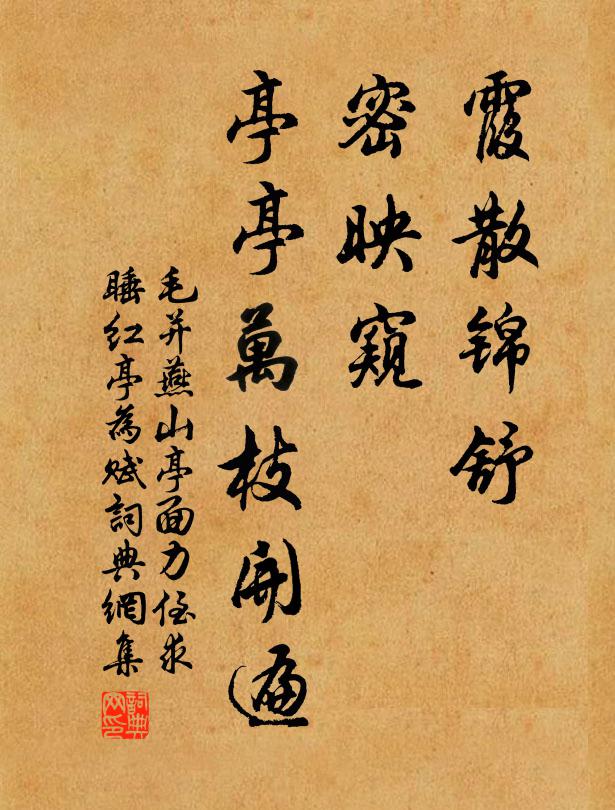 霞散錦舒
密映窺
亭亭萬枝開遍
毛并燕山亭面力侄求
睡紅亭為賦詞典網集
詞典网印